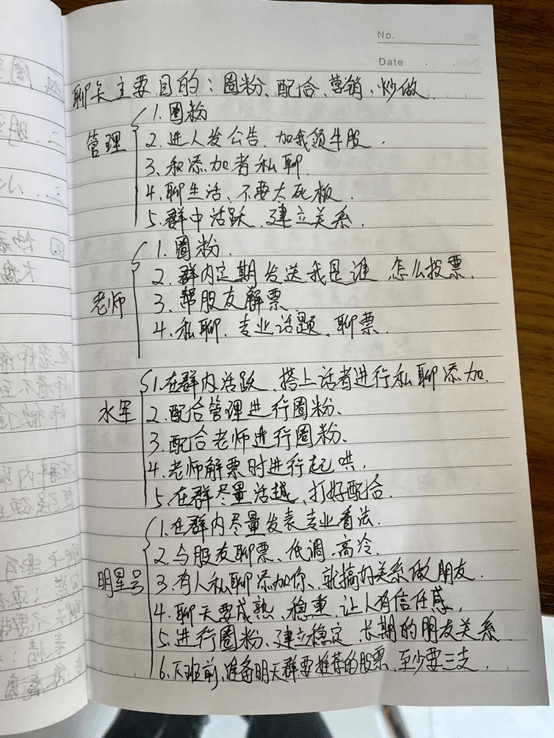 No.
Date
聊天主要目的：圈粉、配合、营销、炒做.
管理
1.圈粉
2.进人发公告.加我领牛股.
3.和添加者私聊
4.聊生活、不要太死板.
5.群中活跃.建立关系.
老师
1.圈粉.
2.群内定期发送我是谁 怎么投票.
3.帮股友解票
4.私聊.专业话题.聊票.
水军
1.在群内活跃.搭上话者进行私聊添加.
2.配合管理进行圈粉、
3.配合老师进行圈粉.
4.老师解票时进行起哄.
5.在群尽量活越.打好配合.
明星号
1.在群内尽量发表专业看法.
2.与股友聊票、低调.高冷.
3.有人私聊添加你、就搞好关系做朋友.
4.聊天要成熟.稳重.让人有信任感.
5.进行圈粉.建立稳定 长期的朋友关系
6.下班前.准备明天群要推荐的股票.至少要三支.